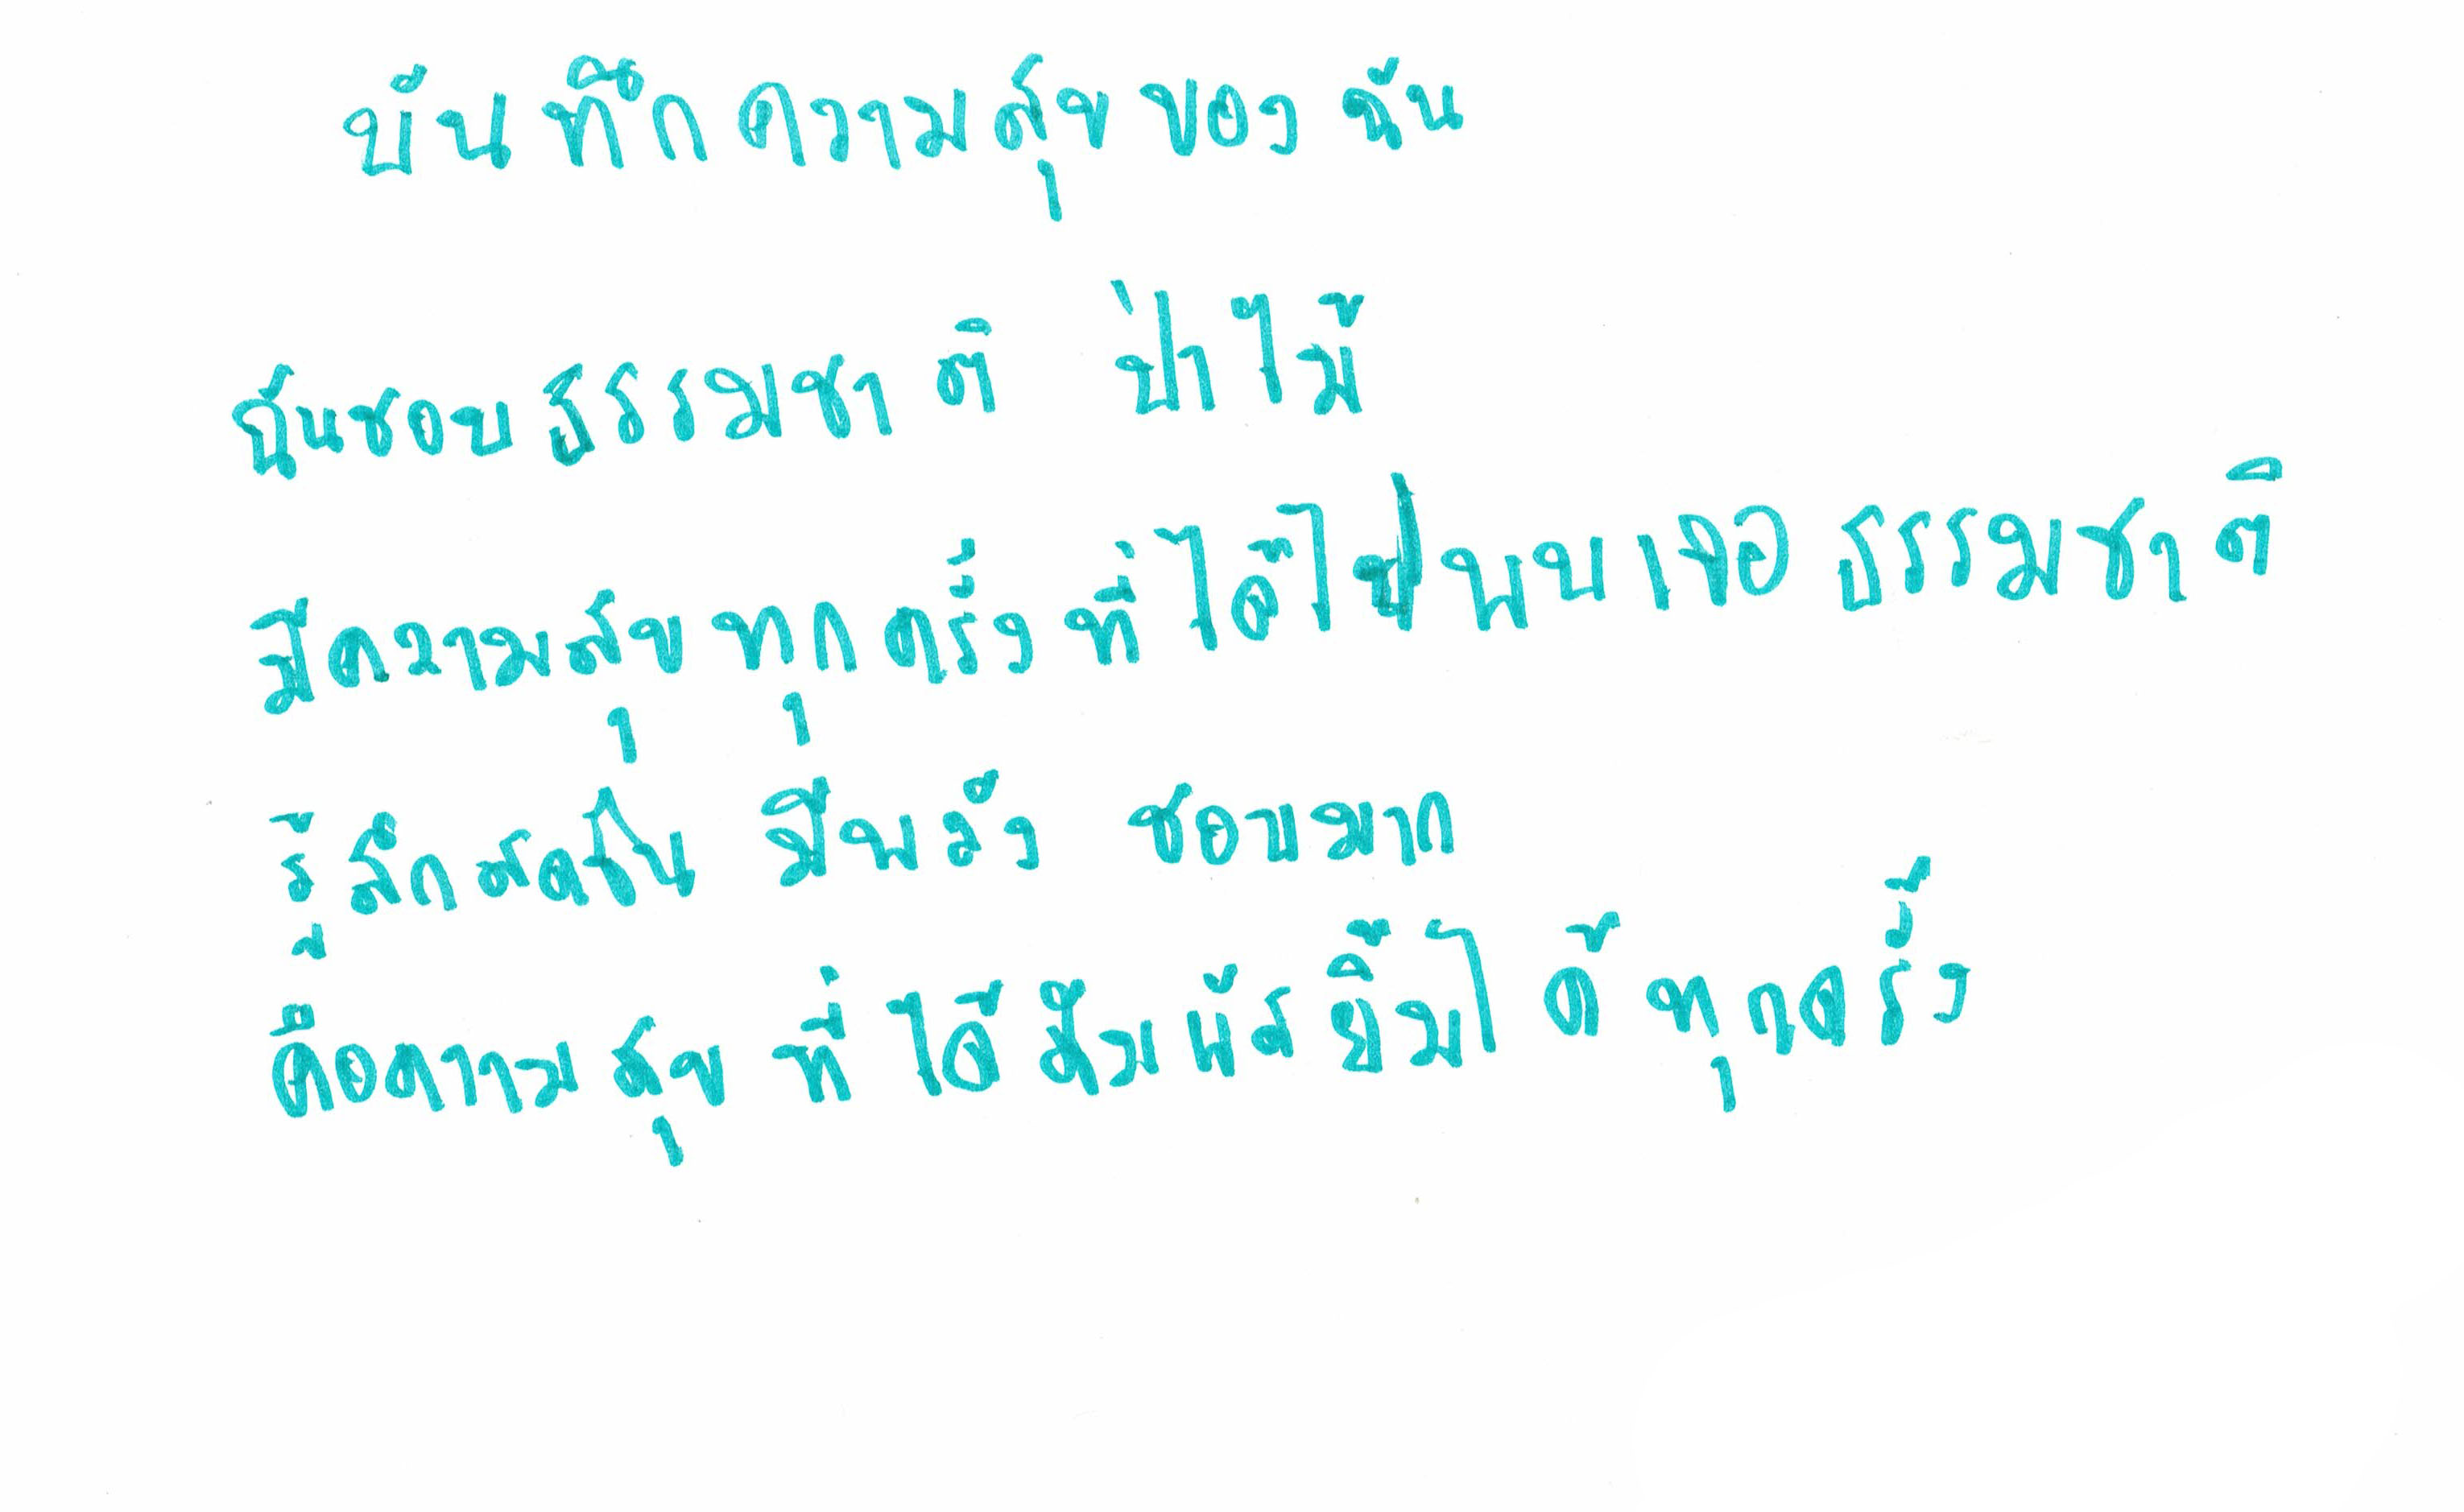 บันทึกความสุขของฉัน
ฉันชอบธรรมชาติ ป่าไม้
มีความสุขทุกครั้งที่ได้ไปพบเจอธรรมชาติ
รู้สึกสดชื่น มีพลัง ชอบมาก
คือความสุขที่ได้สัมผัสยิ้มได้ทุกครั้ง